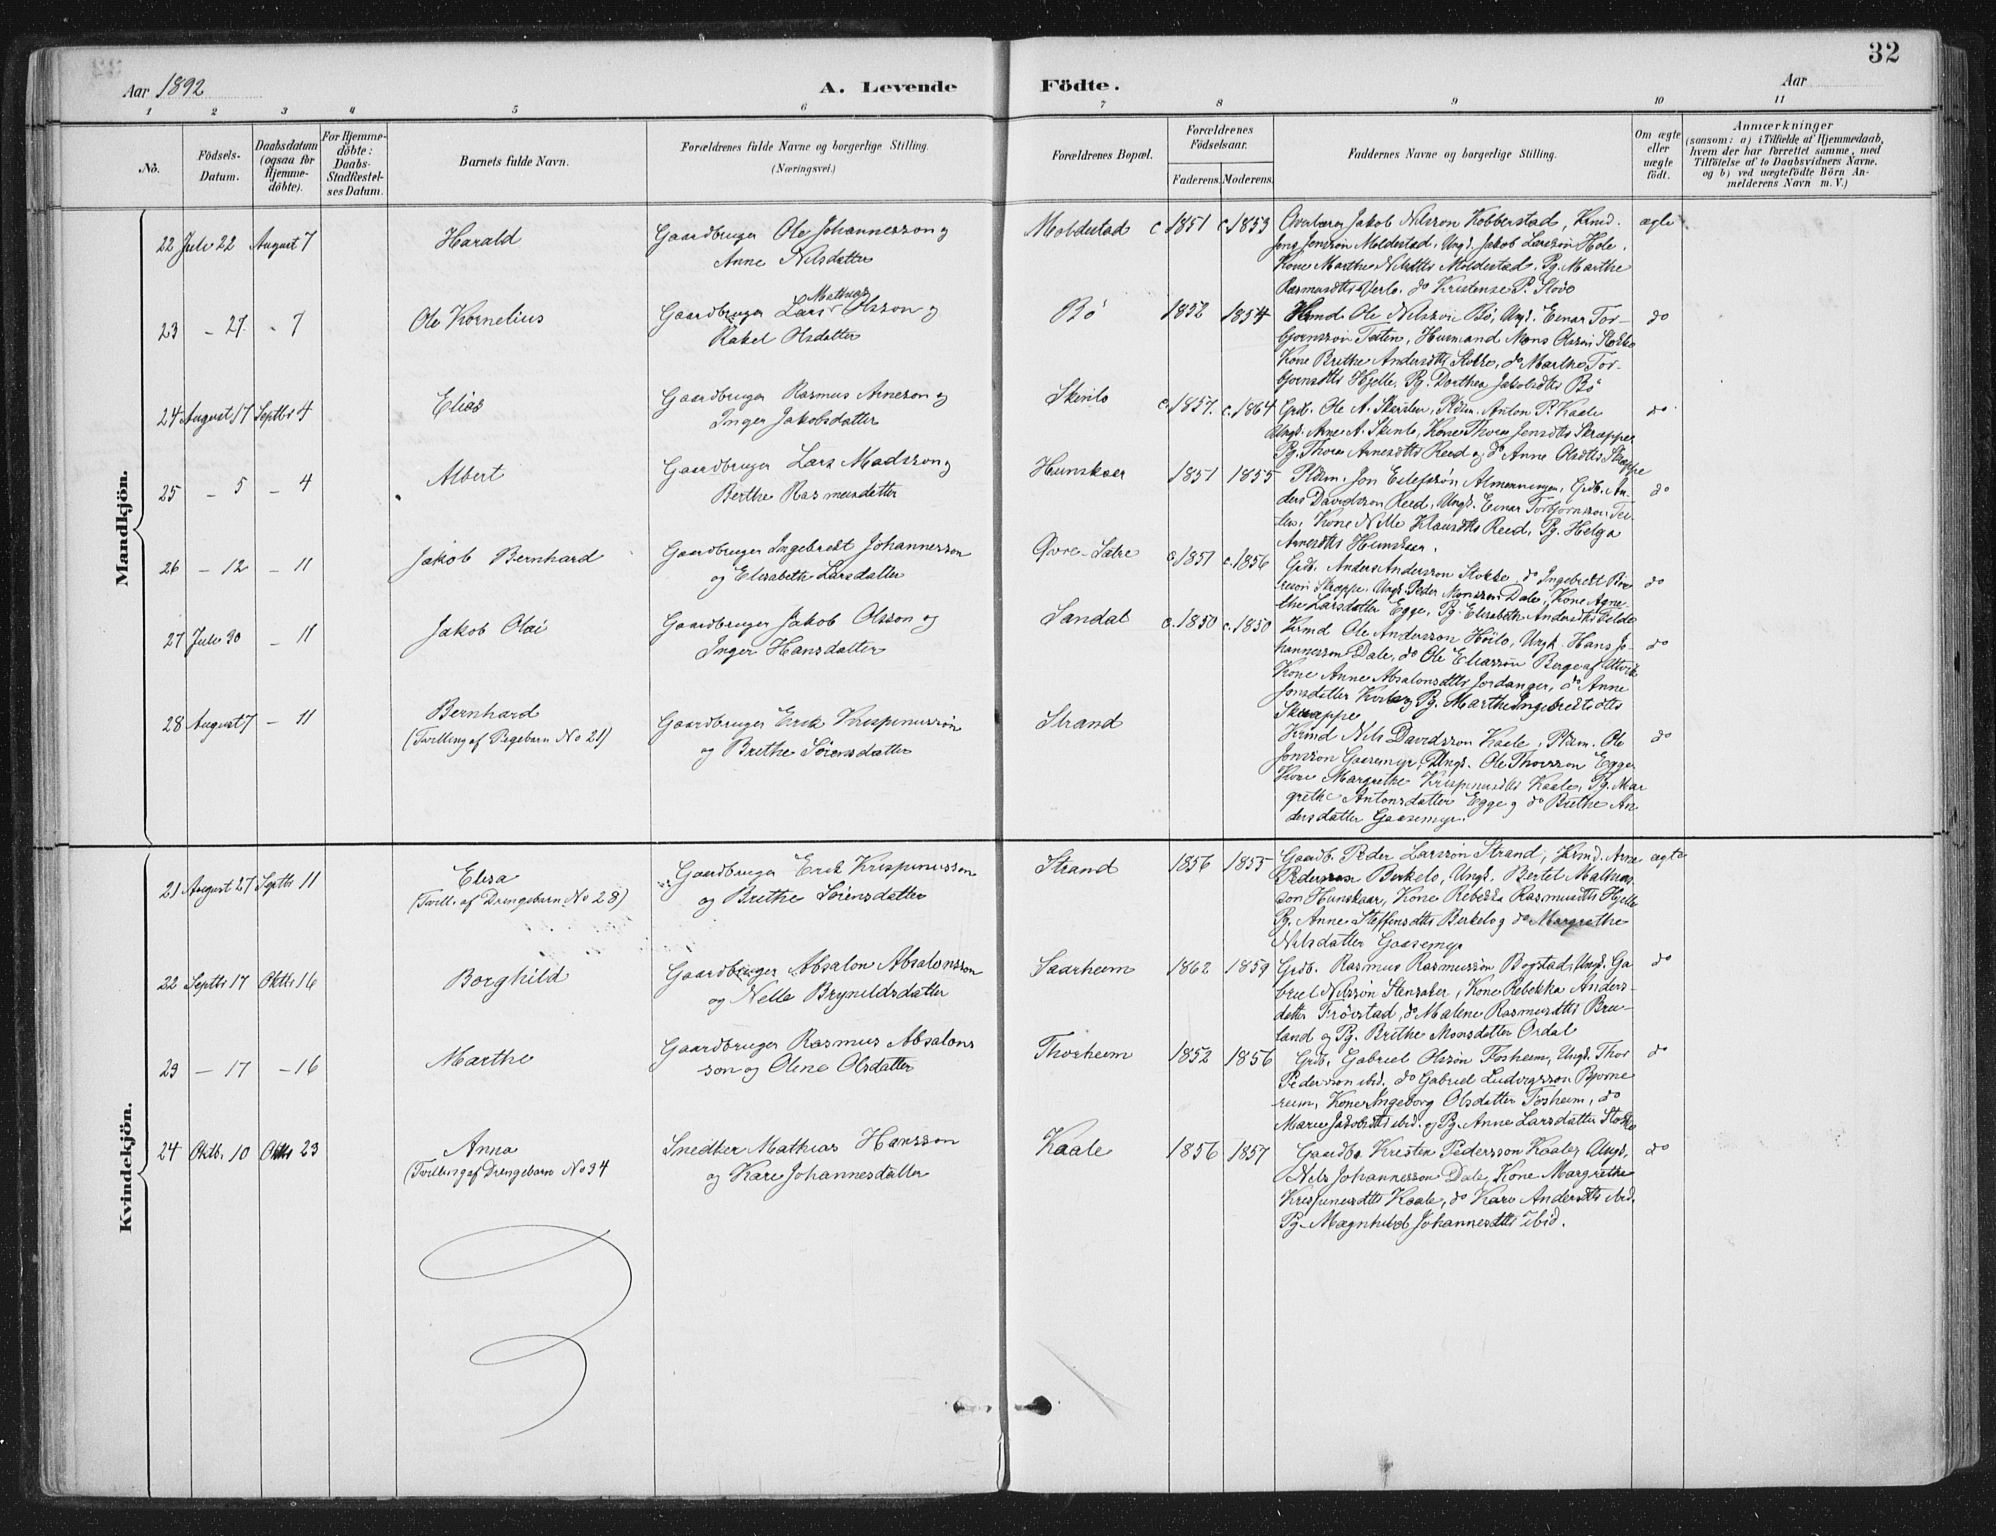 32
Aar 1892
A. Levende Födte.
Aar
1 2 3 4 5 6 7 8 9 10 11
No.
Födsels-Datum.
Daabsdatum (ogsaa for Hjemme-döbte).
For Hjemme-döbte: Daabs-Stadfæstel-ses Datum.
Barnets fulde Navn.
Forældrenes fulde Navne og borgerlige Stilling.
(Næringsvei.)
Forældrenes Bopæl.
Forældrenes Födselsaar.
Faderens. Moderens.
Faddernes Navne og borgerlige Stilling.
Om ægte eller uægte födt.
Anmærkninger
(saasom: a) i Tilfælde af Hjemmedaab,
hvem der har forrettet samme, med
Tilföielse af to Daabsvidners Navne.
og b) ved uægtefödte Börn An-
melderens Navn m. V.)
Mandkjön.
22 Juli 22 August 7
Harald
Gaardbruger Ole Johannesson og
Anne Nilsdatter
Moldestad c 1851 c. 1853
Jakob Nilsson Kobberstad, Krmd.
Jens Jonsson Moldestad, Ungk. Jakob Larsson Hole,
Kone Marthe Nilsdtter Moldestad, Pg. Marthe
Rasmusdtter Verlo, do Kristense P.
ægte
23 - 27 - 7
Ole Kornelius
Gaardbruger Lars Mathias Olsson og
Rakel Olsdatter
Bö 1852 1854
Krmd. Ole Nilsson Bö, Ungk. Einar Tor-
björnsson Teten, Husmand Mons Olsson Stokke
Kone Brithe Andersdtter Stokke, do Marthe Tor-
björnsdtter Hjelle, Pg. Dorthea Jakobsdtter Bö
do
24 August 17 Septbr 4
Elias
Gaardbruger Rasmus Arnesson og
Inger Jakobsdatter
Skinlo c. 1857. c. 1864
Grdb. Ole A. Skinlo, Pldsm. Anton P. Kaale
Ungk. Arne A. Skinlo, Kone Thora Jensdtter Skrappe
Pg. Thora Arnesdtter Reed og do Anne Olsdtter Skrappe
do
25 - 5 - 4
Albert
Gaardbruger Lars Madsson og
Berthe Rasmusdatter
Hunskaar 1851 1855
Pldsm. Jon Eilefsson Almenningen, Grdb. An-
ders Davidsson Reed, Ungk. Einar Torbjörnsson Te-
ten, Kone Nille Klausdtter Reed, Pg. Helga
Arnesdtter Hunskaar.
do
26 - 12 - 11
Jakob Bernhard
Gaardbruger Ingebredt Johannesson
og Elisabeth Larsdatter
Övre-Sætre c. 1851 c. 1856
Grdb. Anders Andersson Stokke, do Ingebredt
Skrappe, Ungk. Peder Monsson Dale, Kone Agne-
the Larsdatter Egge, Pg. Elisabeth Andersdtter Felde
do
27 Juli 30 - 11
Jakob Olai
Gaardbruger Jakob Olsson og
Inger Hansdatter
Sandal c. 1850 c. 1850
Krmd Ole Andersson Höilo, Ungk. Hans Jo-
hannesson Dale, do Ole Eliasson Berge af Utvik
Kone Anne Absalonsdtter Jordanger, do Anne
Jonsdatter og Pg. Marthe Ingebredtsdtter
Skrappe
do
28 August 7 - 11
Bernhard
(Tvilling af Pigebarn No 21)
Gaardbruger Erik Krispinusson
og Brithe Sörensdatter
Strand
Krmd Nils Davidsson Kaale, Pldsm. Ole
Jonsson Gaasemyr, Ungk. Ole Thorsson Egge
Kone Margrethe Krispinusdtter Kaale, Pg. Mar
grethe Antonsdatter Egge og do Brithe An
dersdatter Gaasemyr.
do
Kvindekjön.
21 August 27 Septbr 11
Elisa
(Tvill. af Drengebarn No 28)
Gaardbruger Erik Krispinusson
og Brithe Sörensdatter
Strand 1856 1855
Gaardb. Peder Larsson Strand, Krmd. Arne
Pedersson Birkelo, Ungk. Bertel Mathias
son Hunskaar, Kone Rebekka Rasmusdtter Hjelle
Pg. Anne Steffensdtter Birkelo og do Margrethe
Nilsdatter Gaasemyr
ægte
22 Septbr 17 Oktbr 16
Borghild
Gaardbruger Absalon Absalonsson
og Nelle Brynildsdatter
Saarheim 1862 1859
Grdb. Rasmus Rasmusson Bogstad, Ungk. Ga
briel Nilsson Stensaker, Kone Rebekka Anders-
datter Fröistad, do Malene Rasmusdtter Bru-
land og Pg. Brithe Monsdatter Ordal
do
23 - 17 - 16
Marthe
Gaardbruger Rasmus Absalons
son og Oline Olsdatter
Thorheim 1852 1856
Grdb. Gabriel Olsson Fosheim, Ungk. Thor
Pedersson ibid. do Gabriel Ludvigsson Björne
reim, Kone Ingeborg Olsdatter Fosheim, do
Marie Jakobsdtter ibid. og Pg. Anne Larsdatter Stokke
do
24 Oktb. 10 Oktbr 23
Anna
(Tvilling af Drengebarn No 34
Snedker Mathias Hansson
og Kari Johannesdatter
Kaale 1856 1857
Gaardb. Kristen Pedersson Kaale, Ungk.
Nils Johannesson Dale, Kone Margrethe
Krispinusdtter Kaale, do Kari Andersdtter ibid.
Pg. Magnhild Johannesdtter ibid.
do